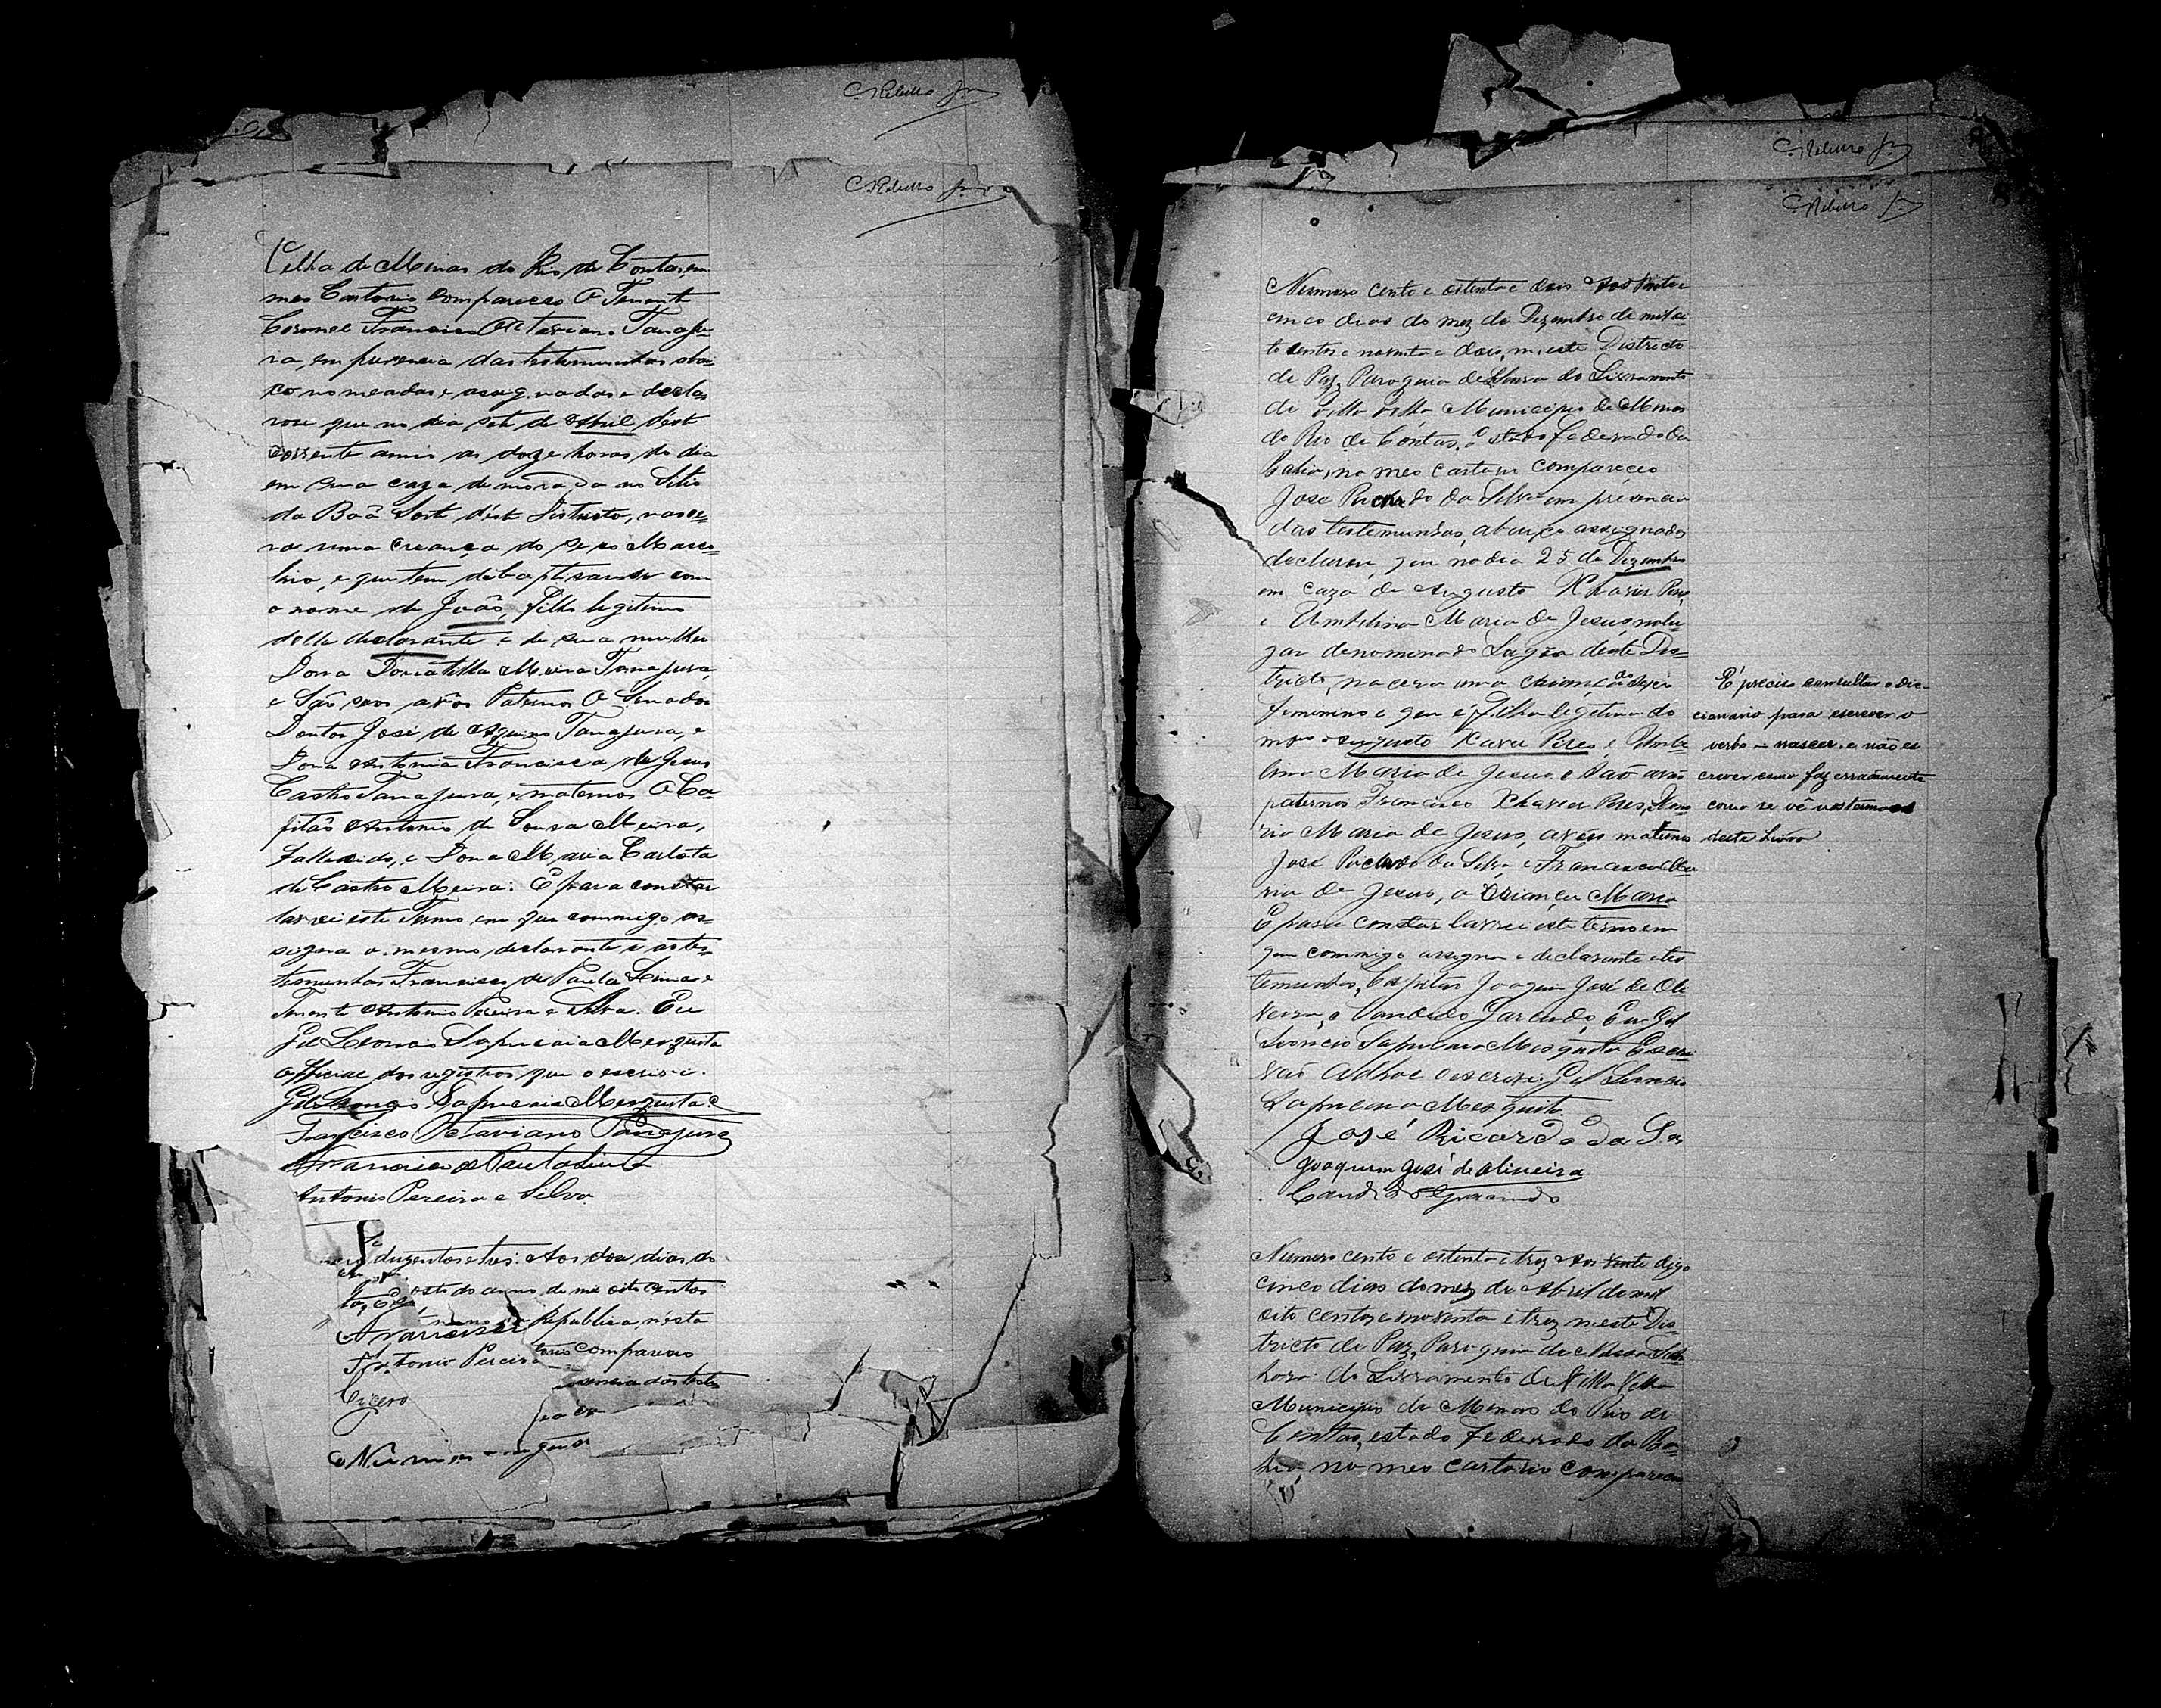 C. Ribeiro Jor
C. Ribeiro Jor
Velha de Minas do Rio de Contas, em
meo Cartorio compareceo O Tenente
Coronel Francisco Octaviano Tanaju-
ra, em presencia das testemunhas abai-
xo nomeadas e assignadas e decla-
rou que no dia sete de Abril d'este
corrente anno as doze horas do dia
em sua caza de morada no Sitio
da Boâ Sorte d'éste Districto, nasce-
ra uma criança do sexo Mascu-
lino, e que tem de baptisar-se com
o nome de João, filho legitimo
delle declarante e de sua mulher
Dona Donatilla Meira Tanajura,
e São seos avôs Paternos O Senador
Doutor José de Aquino Tanajura, e
Dona Antonia Francisca de Jesus
Castro Tanajura, e maternos O Ca-
pitão Antonio de Sousa Meira,
fallecido, e Dona Maria Carlota
de Castro Meira. E para constar
lavrei este Termo em que commigo as-
signa o mesmo declarante e as tes-
temunhas Francisco de Paula Lima e
Tenente Antonio Pereira e Silva. Eu
Gil Leoncio Sapucaia Mesquita
official dos registros que o escrevi.
Gil Leoncio Sapucaia Mesquita
Francisco Octaviano Tanajura
Francisco de Paula Lima
Antonio Pereira e Silva
duzentos e tres: Aos dois dias do
osto do anno de mil oito centos
Republica, nésta
tonio Pereira compareceo
sencia das teste
Cicero
C. Ribeiro Jor
C. Ribeiro Jor
Numero cento e oitenta e dois Aos vinte e
cinco dias do mez de Dezembro de mil oi-
to centos e noventa e dois, n'este Districto
de Paz, Parochia de Senhora do Livramento
de Villa Vélha Municipio de Minas
do Rio de Contas, estado federado da
Bahia, no meo cartorio compareceo
José Ricardo da Silva em presencia
das testemunhas, abaixo assignados
declarou, que no dia 25 de Dezembro
em caza de Augusto Xhavier Peres
e Umbelina Maria de Jesus, no lu-
gar denominado Lagôa deste Dis-
tricto, nacera uma criança do sexo
feminino e que é Filha legitima do
mmo Augusto Xavier Peres e Umbe-
lina Maria de Jesus, e são avós
paternos Francisco Xhavier Peres,
Maria de Jesus, avós maternos
José Ricardo da Silva e Francisca Ma-
ria de Jesus, a criança Maria
E para constar lavrei este termo em
que commigo assigna o declarante e tes-
temunhas, Capitão Joaquim José de Oli-
veira, e Candido Gracindo, Eu Gil
Leoncio Sapucaia Mesquita Escri-
vão Adhoc o escrevi. Gil Leoncio
Sapucaia Mesquita
José Ricardo da S.
Joaquim José de Oliveira
Candido Gracindo
É preciso consultar o dic-
cionario para escrever o
verbo – nascer – e não es-
crever como faz erradamente
como se vê nos termos
deste livro.
Numero cento e oitenta e trez Aos vente digo
cinco dias do mez de Abril de mil
oito centos e noventa e trez neste Dis-
tricto de Paz, Parochia de Nossa Sen-
hora do Livramento de Villa Velha
Municipio de Minas do Rio de
Contas, estado federado da Ba-
hia, no meo cartorio compareceo